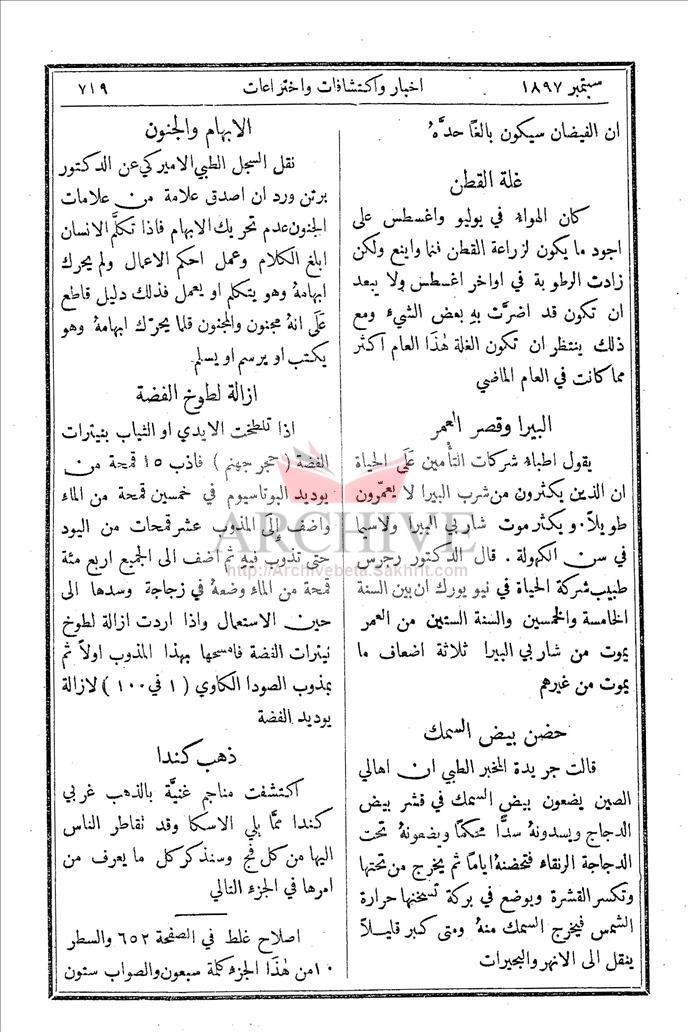 سبتمبر ١٨٩٧
اخبار واكتشافات واختراعات
٧١٩
ان الفيضان سيكون بالغًا حدَّهُ
غلة القطن
كان الهواء في يوليو واغسطس على
اجود ما يكون لزراعة القطن فنما واينع ولكن
زادت الرطوبة في اواخر اغسطس ولا يبعد
ان تكون قد اضرَّت بهِ بعض الشيء ومع
ذلك ينتظر ان تكون الغلة هٰذا العام اكثر
مما كانت في العام الماضي
البيرا وقصر العمر
يقول اطباء شركات التأمين عَلَى الحياة
ان الذين يكثرون من شرب البيرا لا يعمّرون
طويلاً. ويكثر موت شاربي البيرا ولاسيما
في سن الكهولة. قال الدكتور رجرس
طبيب شركة الحياة في نيو يورك ان بين السنة
الخامسة والخمسين والسنة الستين من العمر
يموت من شاربي البيرا ثلاثة اضعاف ما
يموت من غيرهم
حضن بيض السمك
قالت جريدة المخبر الطبي ان اهالي
الصين يضعون بيض السمك في قشر بيض
الدجاج ويسدونهُ سدًّا محكمًا ويضعونهُ تحت
الدجاجة الرنقاء فتحضنهُ ايامًا ثم يخرج من تحتها
وتكسر القشرة ويوضع في بركة تسخنها حرارة
الشمس فيخرج السمك منهُ ومتى كبر قليلاً
ينقل الى الانهر والبحيرات
الابهام والجنون
نقل السجل الطبي الاميركي عن الدكتور
برتن ورد ان اصدق علامة من علامات
الجنون عدم تحريك الابهام فاذا تكلَّم الانسان
ابلغ الكلام وعمل احكم الاعمال ولم يحرك
ابهامهُ وهو يتكلم او يعمل فذلك دليل قاطع
عَلَى انهُ مجنون والمجنون قلما يحرّك ابهامهُ وهو
يكتب او يرسم او يسلم.
ازالة لطوخ الفضة
اذا تلطخت الايدي او الثياب بنيترات
الفضة (حجر جهنم) فاذب ١٥ قمحة من
يوديد البوتاسيوم في خمسين قمحة من الماء
واضف إِلَى المذوب عشر قمحات من اليود
حتى تذوب فيه ثم اضف الى الجميع اربع مئة
قمحة من الماء وضعهُ في زجاجة وسدها الى
حين الاستعمال واذا اردت ازالة لطوخ
نيترات الفضة فامسحها بهذا المذوب اولاً ثم
بمذوب الصودا الكاوي (١ في ١٠٠) لازالة
يوديد الفضة
ذهب كندا
اكتشفت مناجم غنيَّة بالذهب غربي
كندا ممَّا يلي الاسكا وقد تقاطر الناس
اليها من كل فج وسنذكر كل ما يعرف من
امرها في الجزء التالي
اصلاح غلط في الصفحة ٦٥٢ والسطر
١٠ من هٰذا الجزء كلمة سبعون والصواب ستون
ARCHIVE
http://Archivebeta.Sakhrit.com